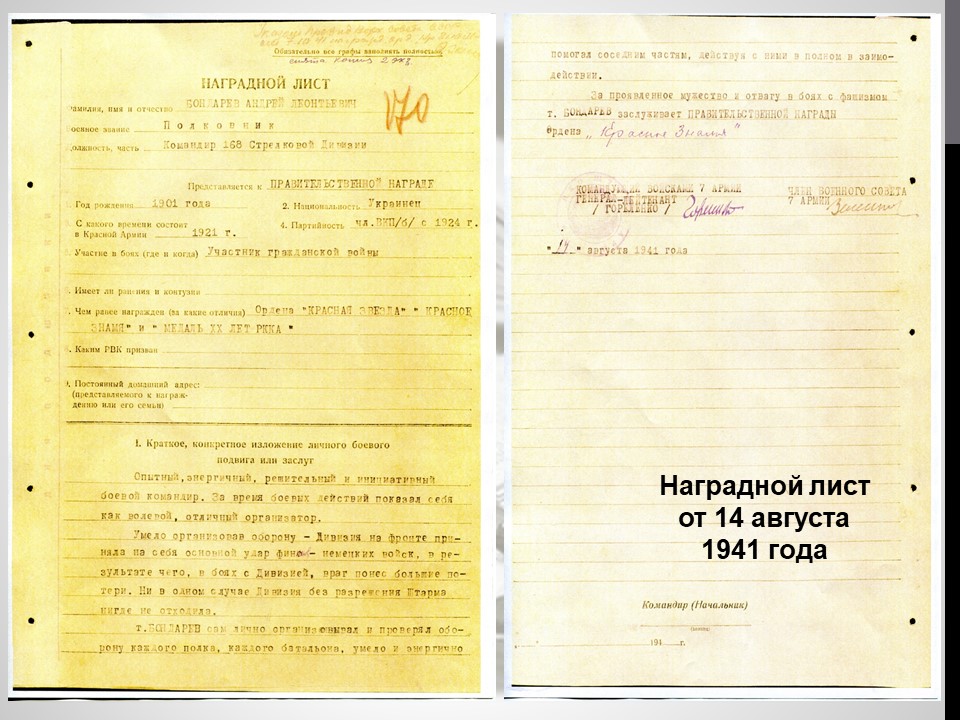 Обязательно все графы заполнять полностью
НАГРАДНОЙ ЛИСТ
170
Фамилия, имя и отчество БОНДАРЕВ АНДРЕЙ ЛЕОНТЬЕВИЧ
военное звание Полковник
должность, часть Командир 168 Стрелковой Дивизии
Представляется к ПРАВИТЕЛЬСТВЕННОЙ НАГРАДЕ
Год рождения 1901 года 2. Национальность Украинец
С какого времени состоит в Красной Армии 1921 г. 4. Партийность чл.ВКП/б/ с 1924 г.
Участие в боях (где и когда) Участник гражданской войны
Имеет ли ранения и контузии
Чем ранее награжден (за какие отличия) Ордена "КРАСНАЯ ЗВЕЗДА" " КРАСНОЕ
ЗНАМЯ" и " МЕДАЛЬ XX ЛЕТ РККА "
. Каким РВК призван
. Постоянный домашний адрес:
(представляемого к награж-
дению или его семьи)
1. Краткое, конкретное изложение личного боевого
подвига или заслуг
Опытный,энергичный, решительный и инициативный
боевой командир. За время боевых действий показал себя
как волевой, отличный организатор.
Умело организовав оборону - Дивизия на фронте при-
няла на себя основной удар фино - немецких войск, в ре-
зультате чего, в боях с Дивизией, враг понес большие по-
тери. Ни в одном случае Дивизия без разрешения Штарма
нигде не отходила.
т.БОНДАРЕВ сам лично организовывал и проверял обо-
рону каждого полка, каждого батальона, умело и энергично
помогал соседним частям, действуя с ними в полном взаимо-
действии.
За проявленное мужество и отвагу в боях с фашизмом
т. БОНДАРЕВ заслуживает ПРАВИТЕЛЬСТВЕННОЙ НАГРАДЫ
Ордена „Красное Знамя"
КОМАНДУЮЩИЙ ВОЙСКАМИ 7 АРМИИ
ГЕНЕРАЛ-ЛЕЙТЕНАНТ
/ ГОРЕЛЕНКО /
ЧЛЕН ВОЕННОГО СОВЕТА
7 АРМИИ
"14" августа 1941 года
Наградной лист
от 14 августа
1941 года
Командир (Начальник)
(подпись)
194 г.